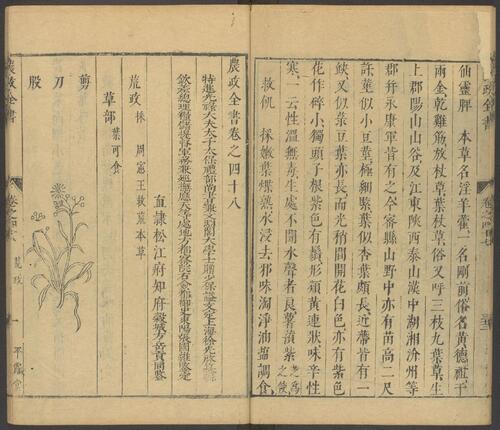 仙靈脾 本草名淫羊藿一名剛前俗名黃德祖千
兩金乾雞筋放杖草棄杖草俗又呼三枝九葉草生
上郡陽山山谷及江東陝西泰山漢中湖湘汾州等
郡幷永康軍皆有之今密縣山野中亦有苗高二尺
許莖似小豆莖極細緊葉似杏葉頗長近蔕皆有一
缺又似菉豆葉亦長而光梢間開花白色亦有紫色
花作碎小獨頭子根紫色有鬚形類黃連狀味辛性
寒一云性溫無毒生處不聞水聲者良薯蕷紫芝爲之使
救飢 採嫩葉煠熟水浸去邪味淘淨油鹽調食
農政全書卷之四十八
特進光祿大夫太子太保禮部尚書兼文淵閣大學士贈少保諡文定上海徐光啓纂輯
欽差總理糧儲提督軍務兼巡撫應天等處地方都察院右僉都御史東陽張國維鑒定
直隸松江府知府穀城方岳貢同鑒
荒政 採周憲王救荒本草
草部 葉可食
剪刀股
農政全書
卷之四十八 荒政 一 平露堂